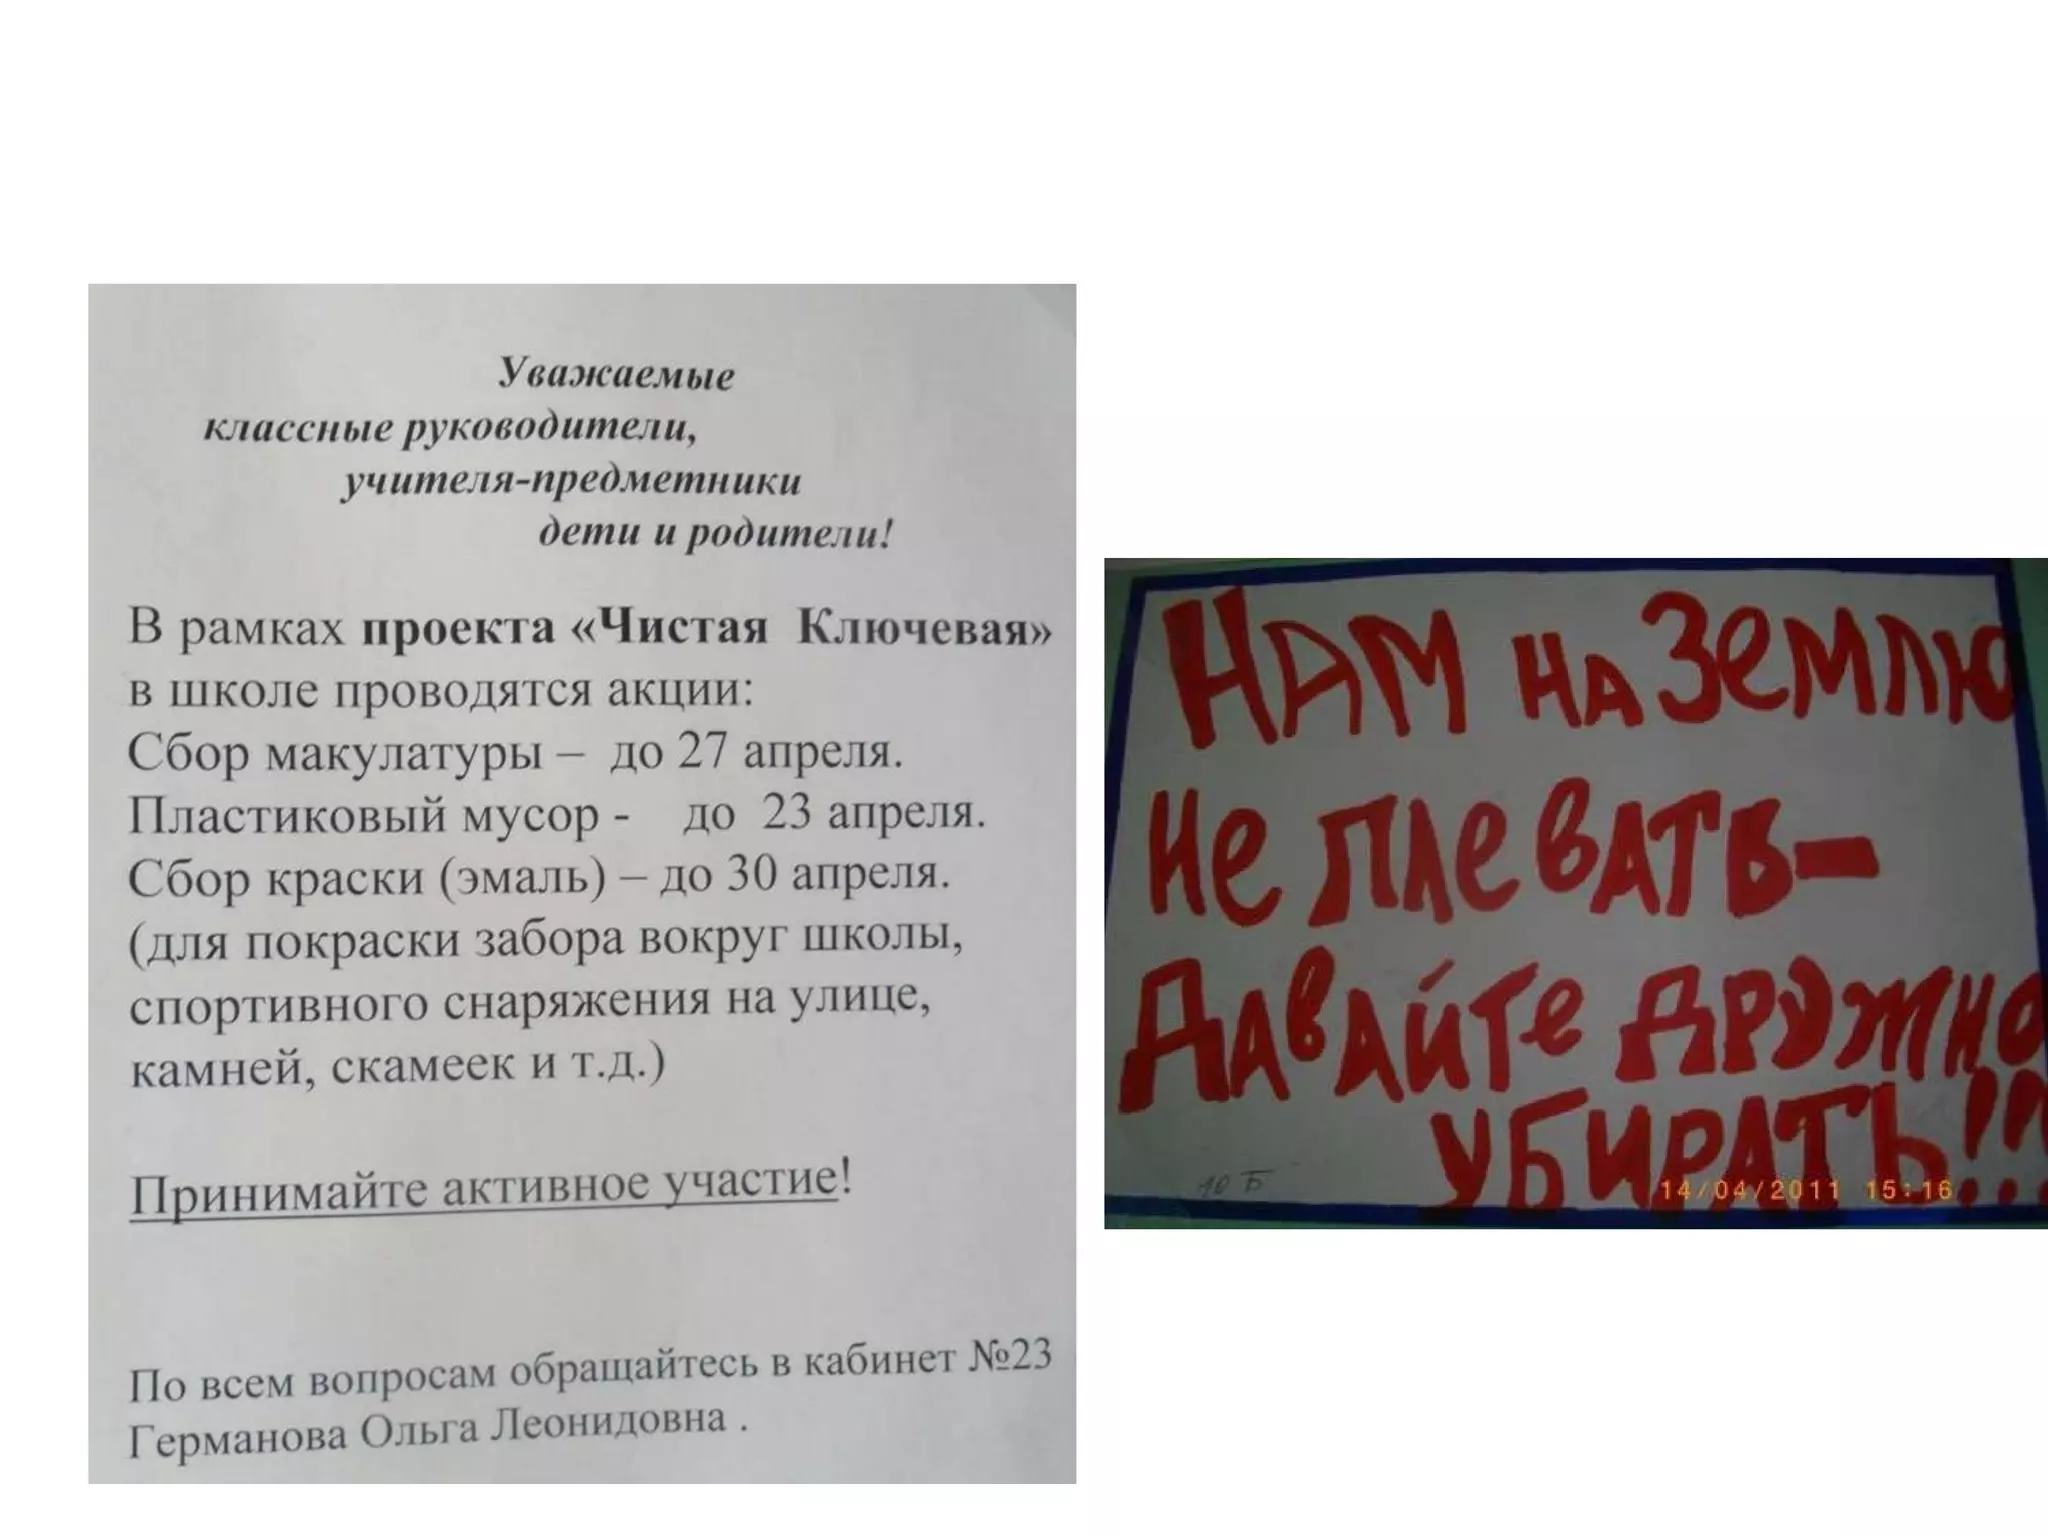 Уважаемые
классные руководители,
учителя-предметники
дети и родители!
В рамках проекта «Чистая Ключевая»
в школе проводятся акции:
Сбор макулатуры – до 27 апреля.
Пластиковый мусор - до 23 апреля.
Сбор краски (эмаль) – до 30 апреля.
(для покраски забора вокруг школы,
спортивного снаряжения на улице,
камней, скамеек и т.д.)
Принимайте активное участие!
По всем вопросам обращайтесь в кабинет №23
Германова Ольга Леонидовна .
НАМ НА ЗЕМЛЮ
НЕ ПЛЕВАТЬ–
ДАВАЙТЕ ДРУЖНО
УБИРАТЬ!!!
10 Б
14/04/2011 15:16